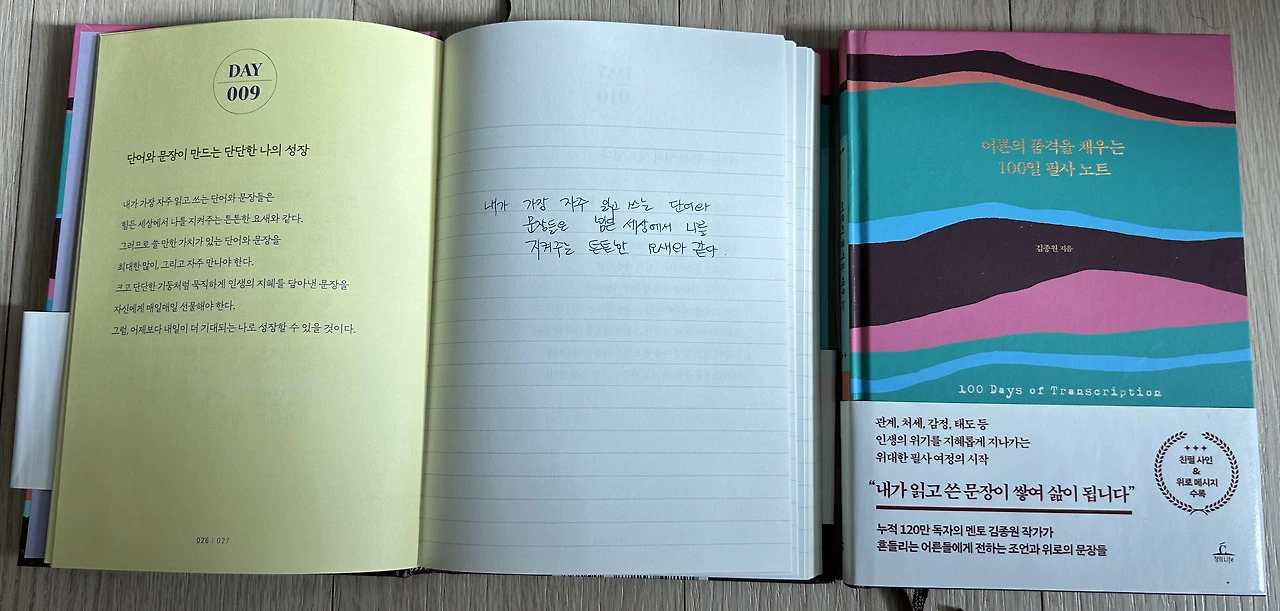 DAY
009
단어와 문장이 만드는 단단한 나의 성장
내가 가장 자주 읽고 쓰는 단어와 문장들은
힘든 세상에서 나를 지켜주는 튼튼한 요새와 같다.
그러므로 쓸 만한 가치가 있는 단어와 문장을
최대한 많이, 그리고 자주 만나야 한다.
크고 단단한 기둥처럼 묵직하게 인생의 지혜를 담아낸 문장을
자신에게 매일매일 선물해야 한다.
그럼, 어제보다 내일이 더 기대되는 나로 성장할 수 있을 것이다.
026 | 027
내가 가장 자주 읽고 쓰는 단어와
문장들은 힘든 세상에서 나를
지켜주는 튼튼한 요새와 같다.
어른의 품격을 채우는
100일 필사 노트
김종원 지음
100 Days of Transcription
관계, 처세, 감정, 태도 등
인생의 위기를 지혜롭게 지나가는
위대한 필사 여정의 시작
“내가 읽고 쓴 문장이 쌓여 삶이 됩니다”
누적 120만 독자의 멘토 김종원 작가가
흔들리는 어른들에게 전하는 조언과 위로의 문장들
친필 사인
&
위로 메시지
수록
청림Life